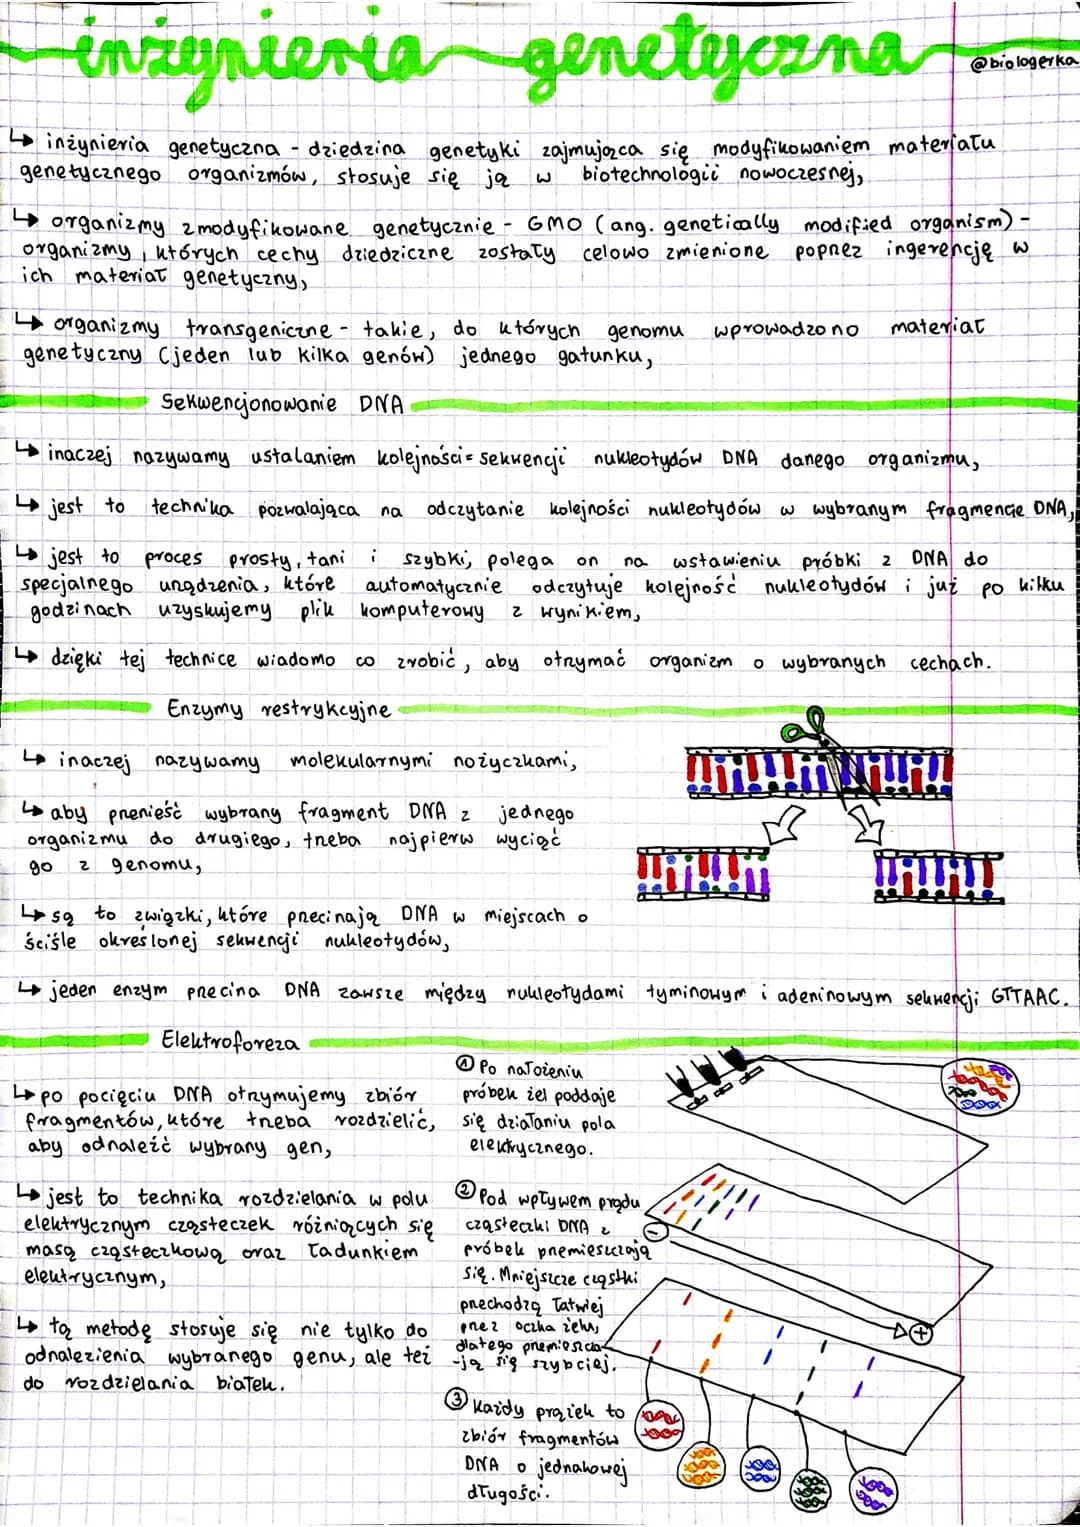 inżynieria genetyczna
@biologerka
↳ inżynieria genetyczna - dziedzina genetyki zajmująca się modyfikowaniem materiału
genetycznego organizmów, stosuje się ją w biotechnologii nowoczesnej,
↳ organizmy zmodyfikowane genetycznie - GMO (ang. genetically modified organism) -
organizmy, których cechy dziedziczne zostały celowo zmienione poprzez ingerencję w
ich materiał genetyczny,
↳ organizmy transgeniczne - takie, do których genomu wprowadzono materiał
genetyczny (jeden lub kilka genów) jednego gatunku,
Sekwencjonowanie DNA
↳ inaczej nazywamy ustalaniem kolejności = sekwencji nukleotydów DNA danego organizmu,
↳ jest to technika pozwalająca na odczytanie kolejności nukleotydów w wybranym fragmencie DNA,
↳ jest to proces prosty, tani i szybki, polega on na wstawieniu próbki z DNA do
specjalnego urządzenia, które automatycznie odczytuje kolejność nukleotydów i już po kilku
godzinach uzyskujemy plik komputerowy z wynikiem,
↳ dzięki tej technice wiadomo co zrobić, aby otrzymać organizm o wybranych cechach.
Enzymy restrykcyjne
↳ inaczej nazywamy molekularnymi nożyczkami,
↳ aby przenieść wybrany fragment DNA z jednego
organizmu do drugiego, trzeba najpierw wyciąć
go z genomu,
↳ są to związki, które przecinają DNA w miejscach o
ściśle określonej sekwencji nukleotydów,
↳ jeden enzym przecina DNA zawsze między nukleotydami tyminowym i adeninowym sekwencji GTTAAC.
Elektroforeza
↳ po pocięciu DNA otrzymujemy zbiór
fragmentów, które trzeba rozdzielić,
aby odnaleźć wybrany gen,
↳ jest to technika rozdzielania w polu
elektrycznym cząsteczek różniących się
masą cząsteczkową oraz ładunkiem
elektrycznym,
↳ tą metodę stosuje się nie tylko do
odnalezienia wybranego genu, ale też
do rozdzielania białek.
① Po nałożeniu
próbek żel poddaje
się działaniu pola
elektrycznego.
② Pod wpływem prądu
cząsteczki DNA z
próbek przemieszczają
się. Mniejsze cząstki
przechodzą łatwiej
przez oczka żelu,
dlatego przemieszcza-
-ją się szybciej.
③ Każdy prążek to
zbiór fragmentów
DNA o jednakowej
długości.
-
+